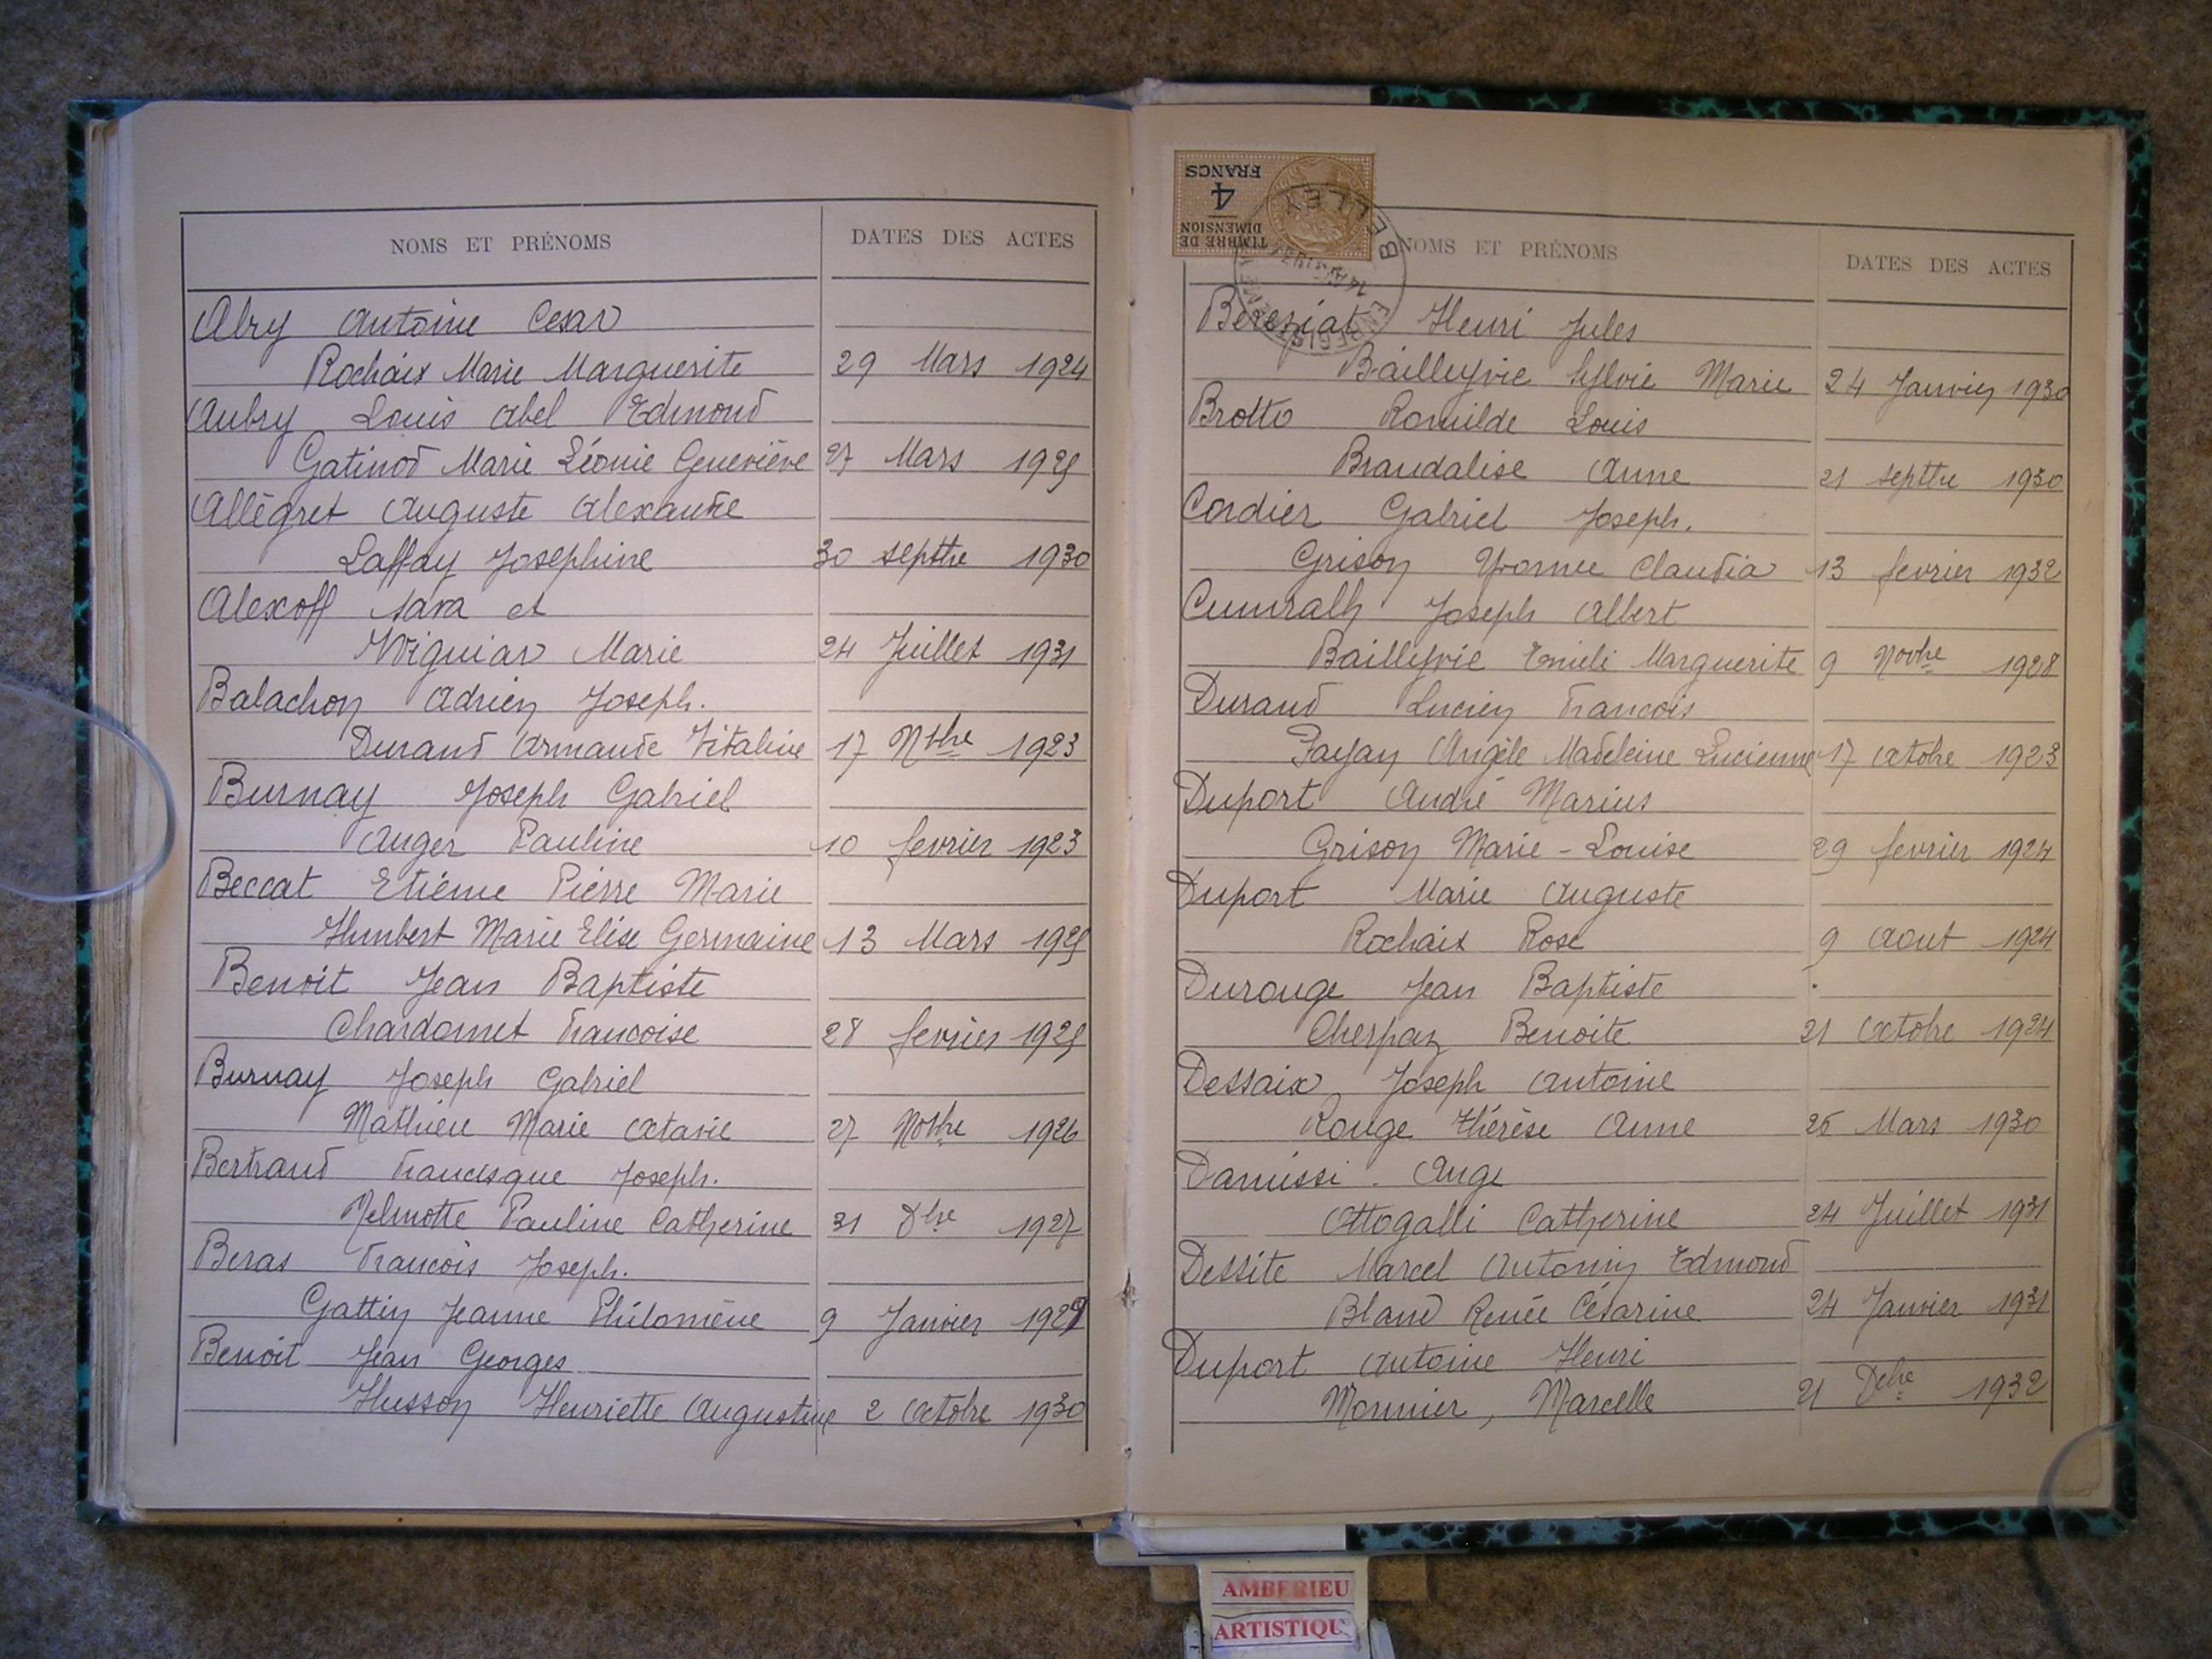 NOMS ET PRÉNOMS DATES DES ACTES
Abry Antoine Cesar
Rochaix Marie Marguerite 29 Mars 1924
Aubry Louis Abel Edmond
Gatinod Marie Léonie Geneviève 27 Mars 1925
Allégret Auguste Alexandre
Laffay Josephine 30 septbre 1930
Alexoff Sava et
Marie 24 Juillet 1931
Balachon Adrien Joseph.
Durand Armande Vitaline 17 Nbre 1923
Burnay Joseph Gabriel
Auger Pauline 10 fevrier 1923
Beccat Etienne Pierre Marie
Humbert Marie Elise Germaine 13 Mars 1925
Benoit Jean Baptiste
Chardonnet Francoise 28 fevrier 1925
Burnay Joseph Gabriel
Mathieu Marie Octavie 27 Novbre 1926
Bertrand Francisque Joseph.
Delmotte Pauline Catherine 31 Dbre 1927
Beras Francois Joseph.
Gattin Jeanne Philomène 9 Janvier 1929
Benoit Jean Georges
Husson Henriette Augustine 2 Octobre 1930
TIMBRE DE
DIMENSION
4
FRANCS
BELLEY
NOMS ET PRÉNOMS DATES DES ACTES
Béréziat Henri Jules
Bailleyvie Sylvie Marie 24 Janvier 1930
Brotto Romilde Louis
Brandalise Anne 21 septbre 1930
Cordier Gabriel Joseph.
Grison Yvonne Claudia 13 fevrier 1932
Joseph Albert
Bailleyvie Emilie Marguerite 9 Novbre 1928
Durand Lucien Francois
Payan Angèle Madeleine Lucienne 17 Octobre 1923
Duport André Marius
Grison Marie-Louise 29 fevrier 1924
Duport Marie Auguste
Rochaix Rose 9 Aout 1924
Durouge Jean Baptiste
Cherpaz Benoite 21 Octobre 1924
Dessaix Joseph Antoine
Rouge Thérèse Anne 25 Mars 1930
Damissi. Ange
Ottogalli Catherine 24 Juillet 1931
Dessite Marcel Antonin Edmond
Blanc Renée Césarine 24 Janvier 1931
Duport Antoine Henri
Monnier, Marcelle 21 Dcbre 1932
AMBERIEU
ARTISTIQU